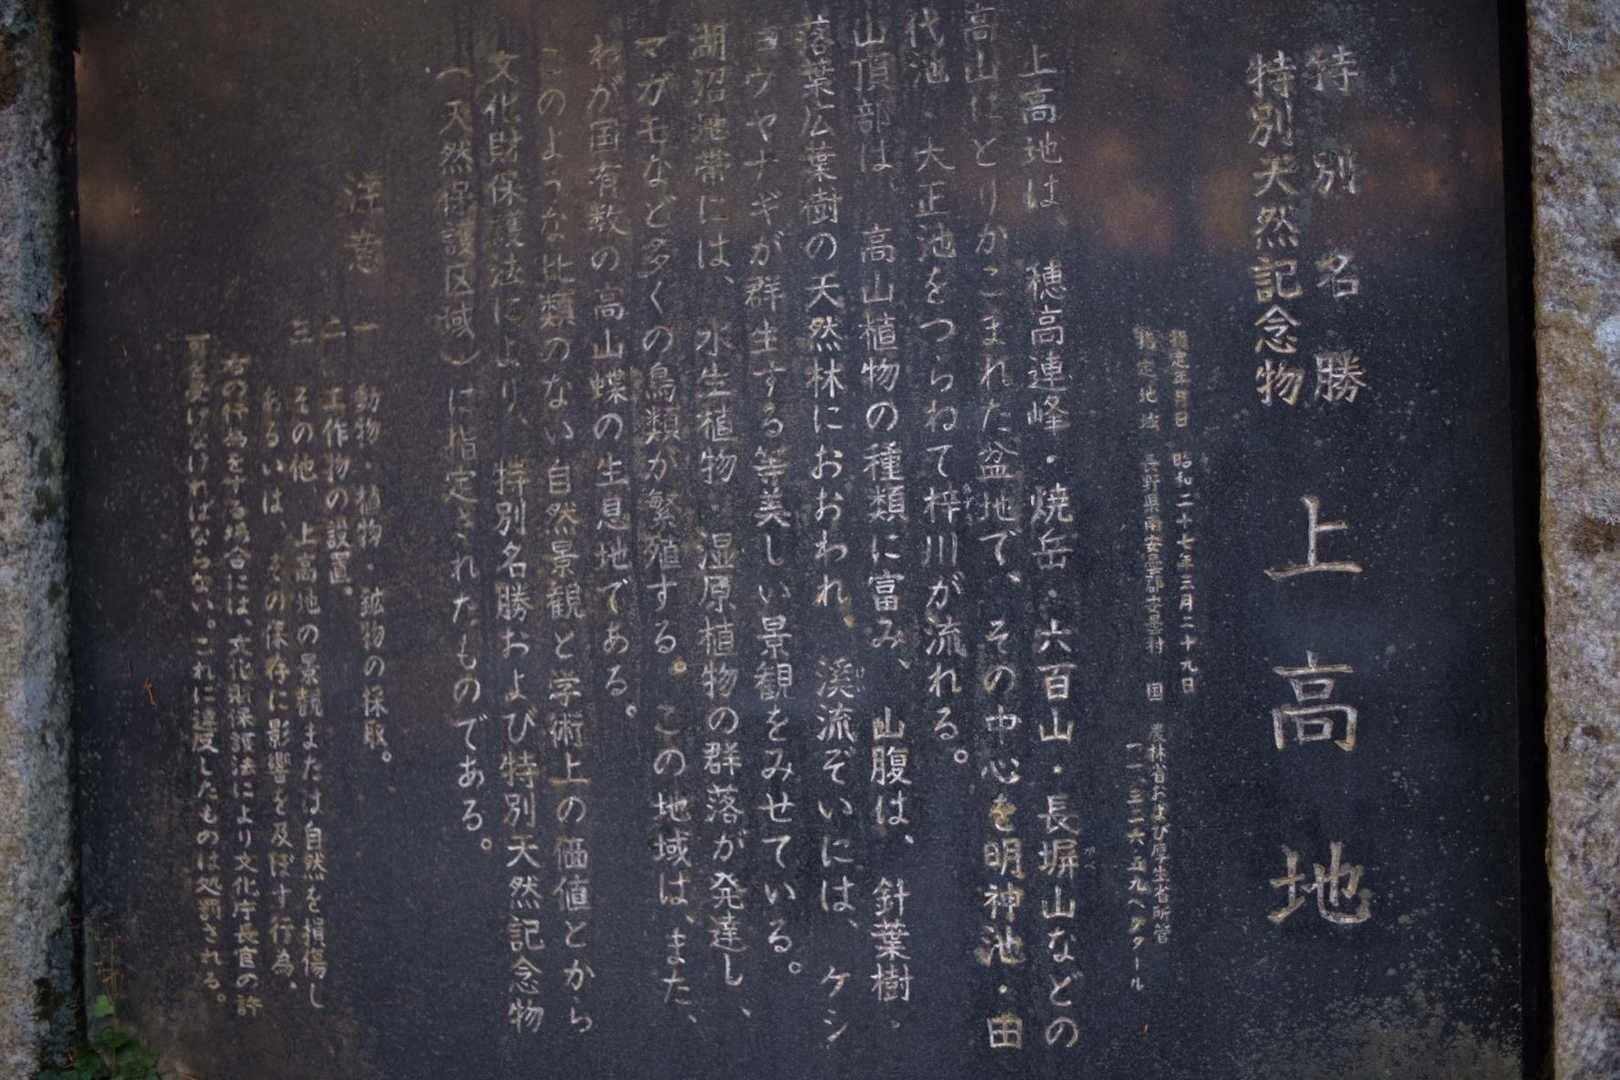 特別名勝
特別天然記念物
上高地
指定年月日 昭和二十七年三月二十九日
指定地域 長野県南安曇郡安曇村 国 農林省および厚生省所管
一一、三二六・五九ヘクタール
上高地は、穂高連峰・焼岳・六百山・長塀山などの
高山にとりかこまれた盆地で、その中心を明神池・田
代池・大正池をつらねて梓川が流れる。
山頂部は、高山植物の種類に富み、山腹は、針葉樹・
落葉広葉樹の天然林におおわれ、溪流ぞいには、ケシ
ョウヤナギが群生する等美しい景観をみせている。
湖沼池帯には、水生植物・湿原植物の群落が発達し、
マガモなど多くの鳥類が繁殖する。この地域は、また、
わが国有数の高山蝶の生息地である。
このような比類のない自然景観と学術上の価値とから
文化財保護法により、特別名勝および特別天然記念物
(天然保護区域)に指定されたものである。
注意
一 動物・植物・鉱物の採取。
二 工作物の設置。
三 その他、上高地の景観または自然を損傷し
あるいは、その保存に影響を及ぼす行為、
右の行為をする場合には、文化財保護法により文化庁長官の許
可を受けなければならない。これに違反したものは処罰される。